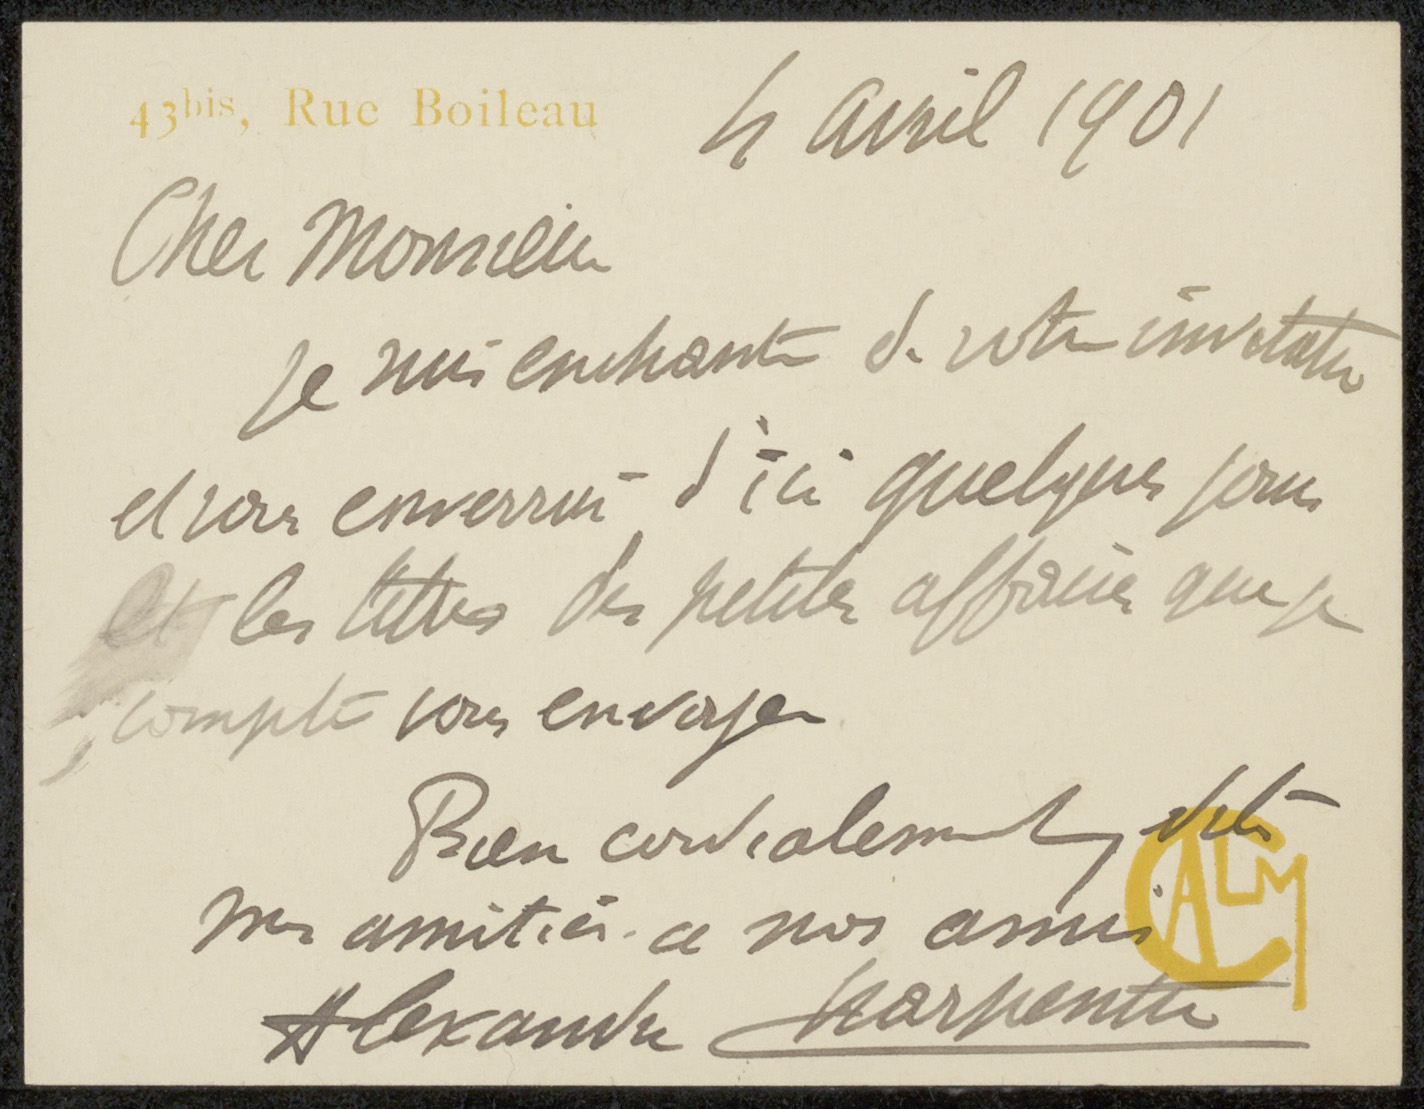 43bis, Rue Boileau
4 avril 1901
Cher Monsieur
je suis enchanté de votre invitation
et vous enverrai d'ici quelques jours
et les titres des petites affaires que je
compte vous envoyer
Bien cordialement, dites
mes amitiés à nos amis
Alexandre Charpentier